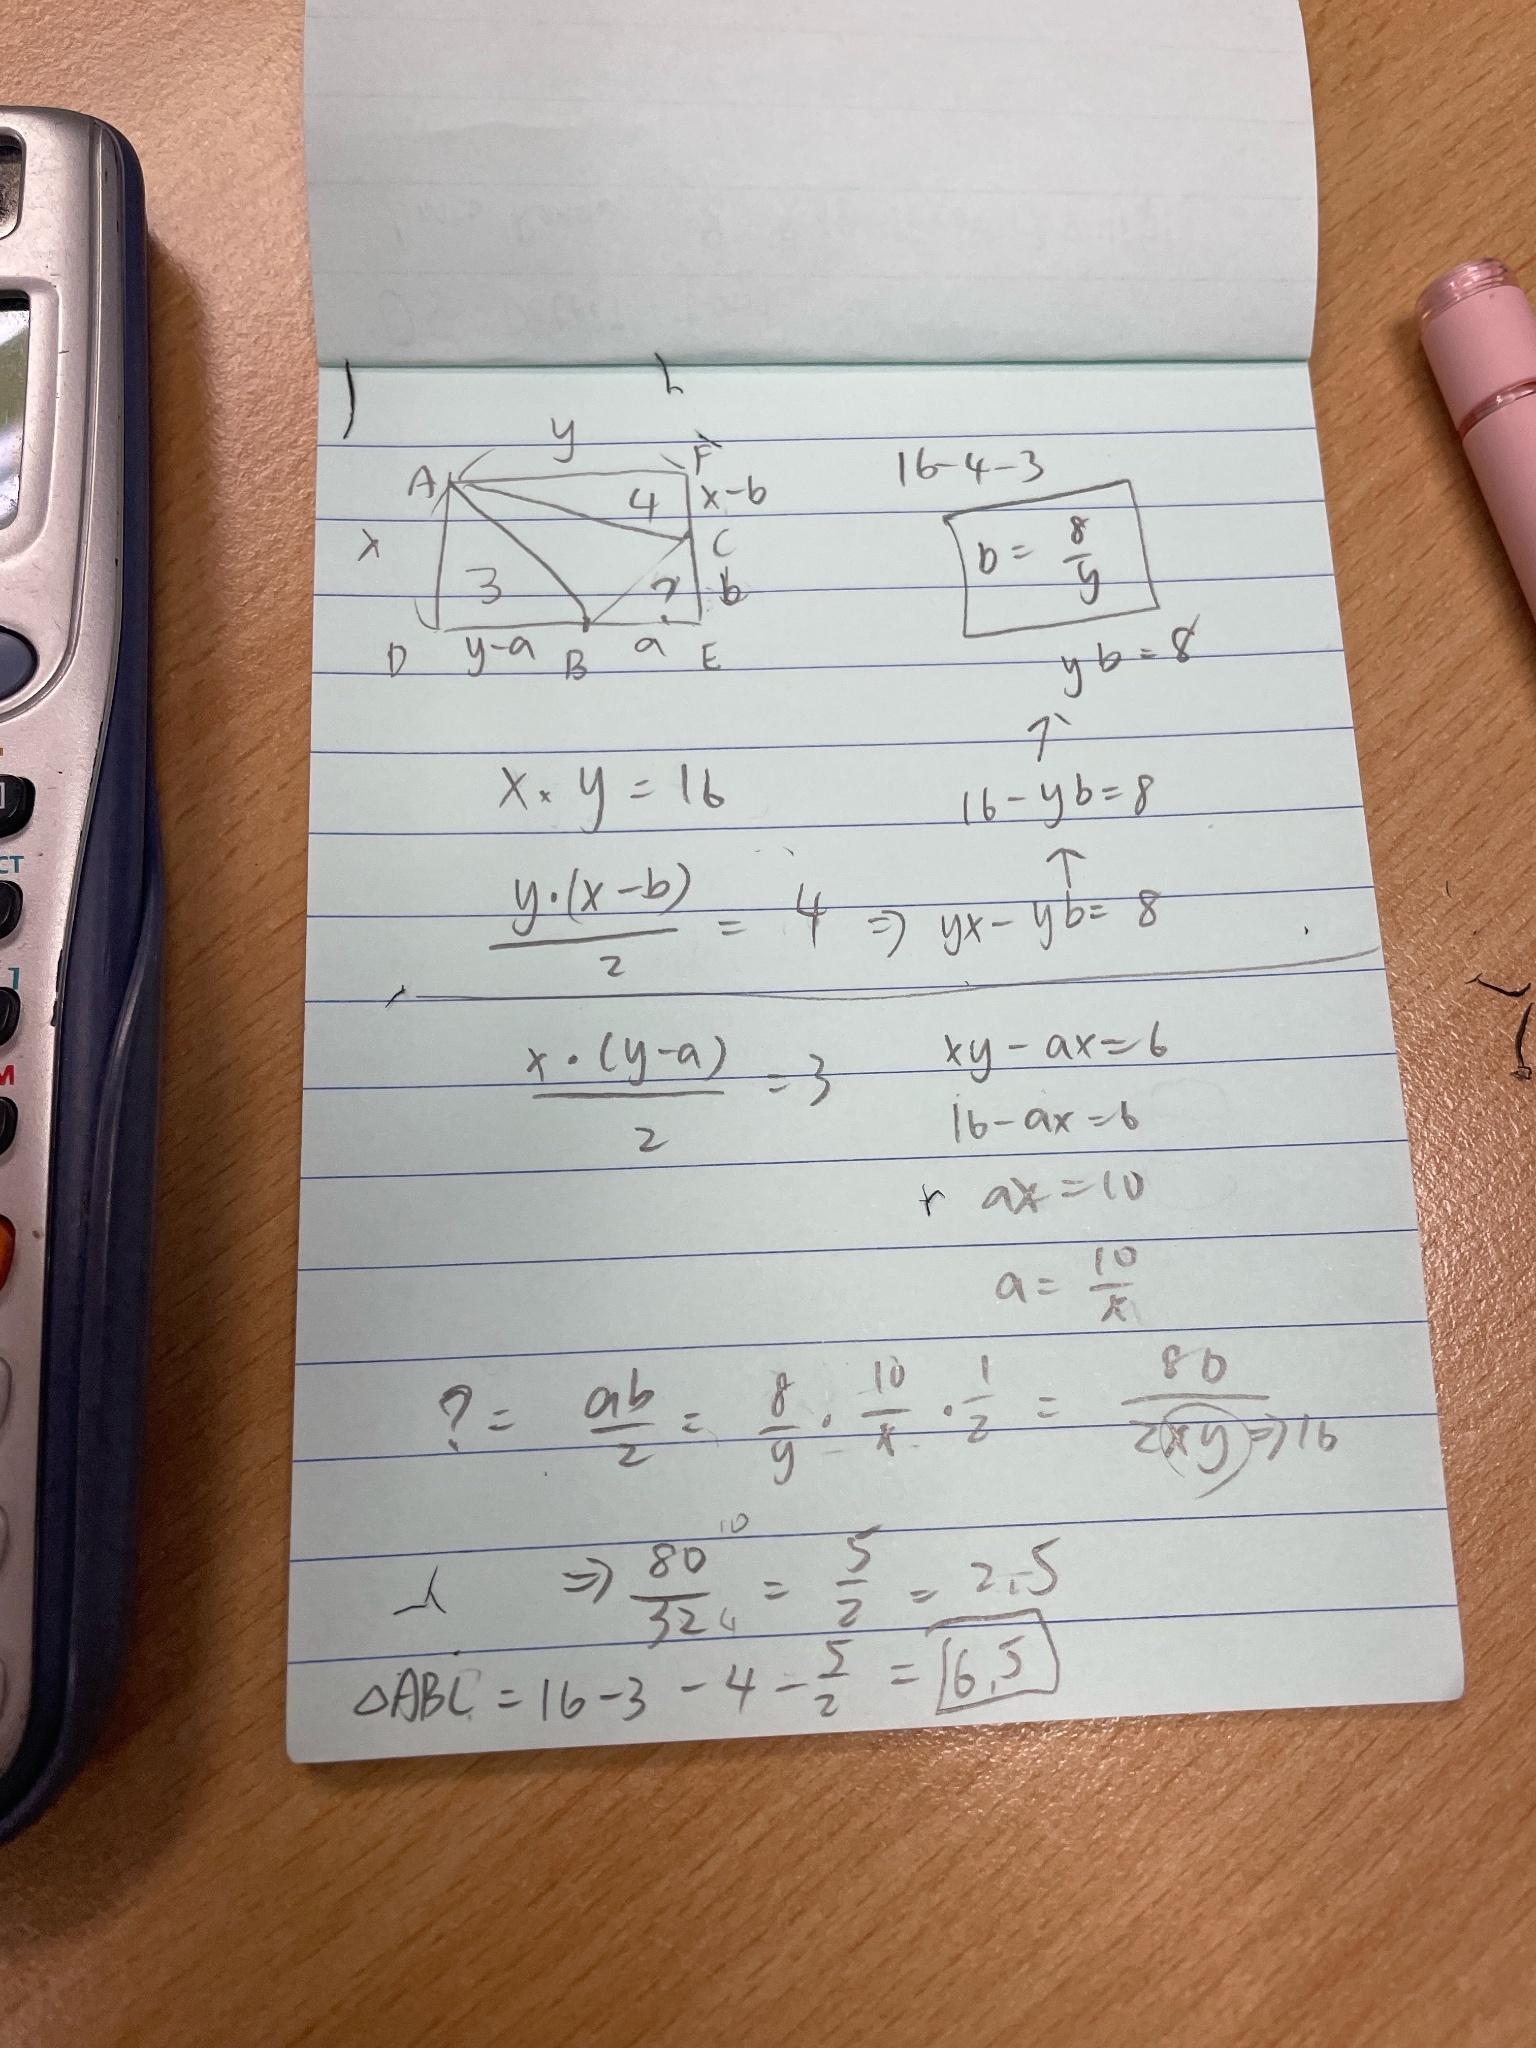 y
A
F
4
x-b
x
C
3
?
b
D
y-a
B
a
E
16-4-3
b = 8/y
yb = 8
↑
x × y = 16
16 - yb = 8
↑
y·(x-b)/2 = 4 ⇒ yx - yb = 8
x·(y-a)/2 = 3
xy - ax = 6
16 - ax = 6
ax = 10
a = 10/x
? = ab/2 = 8/y · 10/x · 1/2 = 80/2xy ⇒ 16
⇒ 80/32 = 5/2 = 2.5
10
4
△ABC = 16 - 3 - 4 - 5/2 = 6.5
CT
M